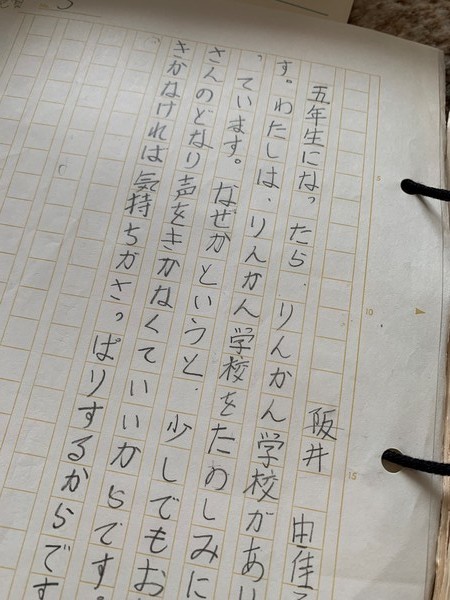 阪井 由佳
五年生になったら、りんかん学校があり
す。わたしは、りんかん学校をたのしみに
っています。なぜかというと、少しでもお
さんのどなり声をきかなくていいからです。
きかなければ気持ちがさっぱりするからです
5
10
15